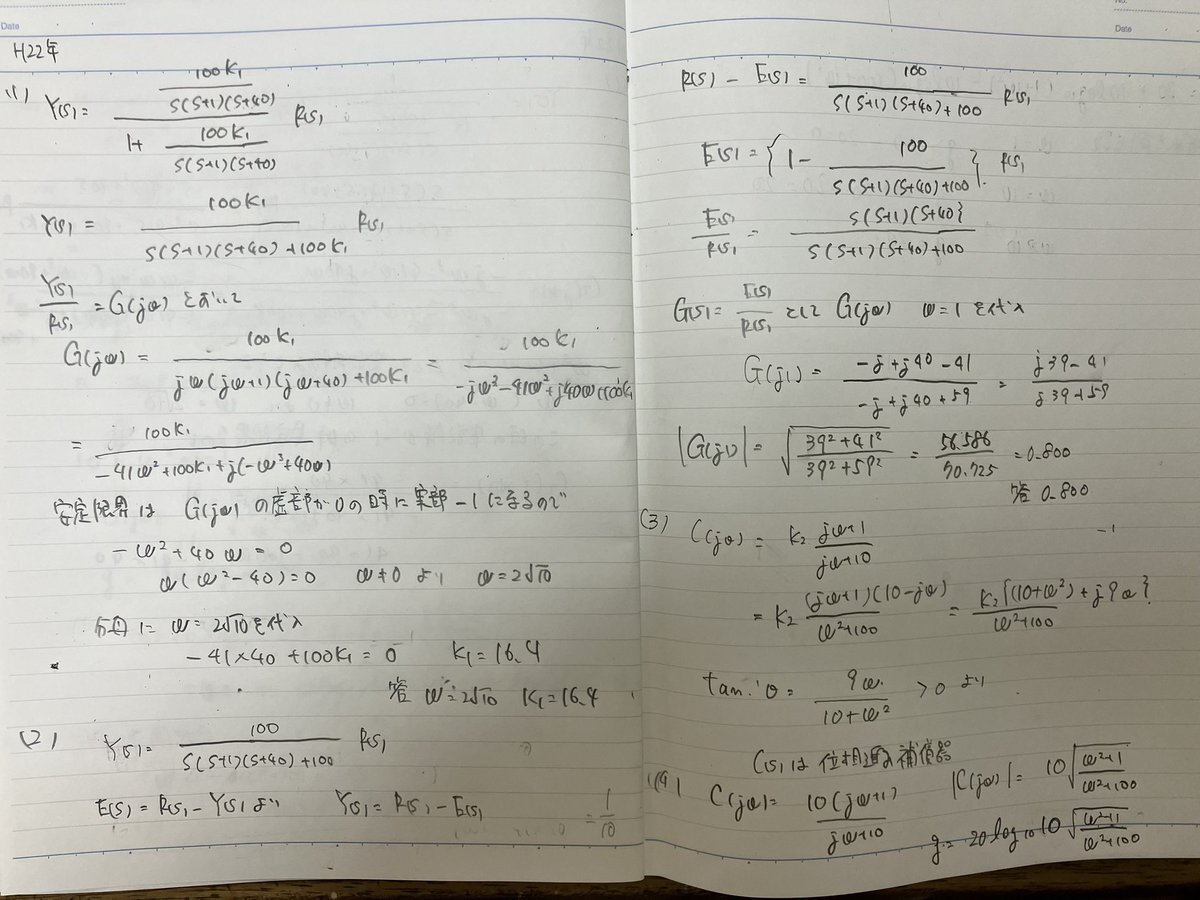 Date
H22年
(1) Y(s) = (100K₁ / S(S+1)(S+40)) / (1 + 100K₁ / S(S+1)(S+40)) R(s)
Y(s) = 100K₁ / (S(S+1)(S+40)+100K₁) R(s)
Y(s)/R(s) = G(jω) とおいて
G(jω) = 100K₁ / (jω(jω+1)(jω+40)+100K₁) = 100K₁ / (-jω³-41ω²+j40ω+100K₁)
= 100K₁ / (-41ω²+100K₁+j(-ω³+40ω))
安定限界は G(jω) の虚部が0の時に実部 -1 になるので
-ω²+40ω = 0
ω(ω²-40)=0 ω≠0 より ω=2√10
分母に ω=2√10を代入
-41×40+100K₁ = 0 K₁=16.4
答 ω=2√10 K₁=16.4
(2) Y(s) = 100 / (S(S+1)(S+40)+100) R(s)
E(s) = R(s) - Y(s) より Y(s) = R(s) - E(s)
= 1/10
No.
Date
R(s) - E(s) = 100 / (S(S+1)(S+40)+100) R(s)
E(s) = {1 - 100 / (S(S+1)(S+40)+100)} R(s)
E(s)/R(s) = S(S+1)(S+40} / (S(S+1)(S+40)+100)
G(s) = E(s)/R(s) として G(jω) ω=1 を代入
G(j1) = (-j+j40-41) / (-j+j40+59) = (j39-41) / (j39+59)
|G(j1)| = √((39²+41²)/(39²+59²)) = 56.586/70.725 = 0.800
答 0.800
(3) C(jω) = K₂ (jω+1)/(jω+10)
-1
= K₂ (jω+1)(10-jω) / (ω²+100) = K₂{(10+ω²)+j9ω} / (ω²+100)
tan⁻¹θ = 9ω / (10+ω²) > 0 より
C(s) は 位相進み補償器
(4) C(jω) = 10(jω+1) / (jω+10) |C(jω)| = 10√((ω²+1)/(ω²+100))
g = 20 log₁₀ 10√((ω²+1)/(ω²+100))